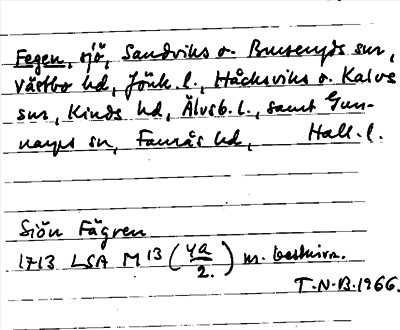 Fegen, sjö, Sandviks o. Burseryds snr,
Västbo hd, Jönk. l., Håcksviks o. Kalvs
snr, Kinds hd, Älvsb. l., samt Gun-
narps sn, Faurås hd, Hall. l.
Siön Fägren
1713 LSA M 13 (ya/2.) m. beskrivn.
T.N.B. 1966.